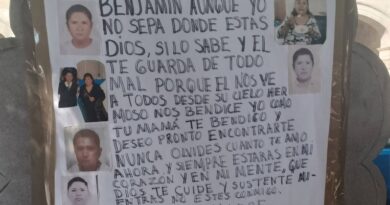 BENJAMIN AUNQUE YO
NO SEPA DONDE ESTAS
DIOS, SI LO SABE Y EL
TE GUARDA DE TODO
MAL PORQUE EL NOS VE
A TODOS DESDE SU CIELO HER
MOSO NOS BENDICE YO COMO
TU MAMÁ TE BENDIGO Y
DESEO PRONTO ENCONTRARTE
NUNCA OLVIDES CUANTO TE AMO
AHORA Y SIEMPRE ESTARAS EN MI
CORAZON Y EN MI MENTE, QUE
DIOS TE CUIDE Y SUSTENTE MI-
ENTRAS NO ESTES CONMIGO.